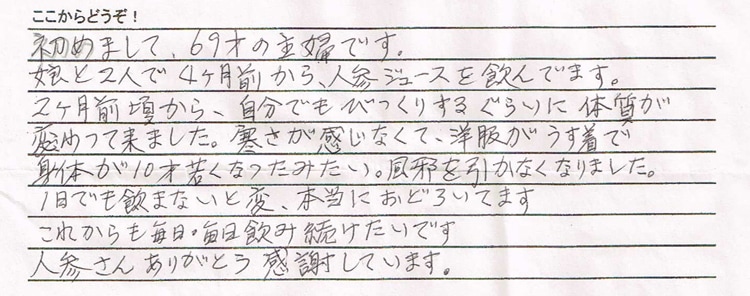 ここからどうぞ!
初めまして、69才の主婦です。
娘と2人で4ヶ月前から、人参ジュースを飲んでます。
2ヶ月前頃から、自分でもびっくりするぐらいに体質が
変わって来ました。寒さが感じなくて、洋服がうす着で
身体が10才若くなったみたい。風邪を引かなくなりました。
1日でも飲まないと変、本当におどろいてます
これからも毎日・毎日飲み続けたいです
人参さんありがとう感謝しています。